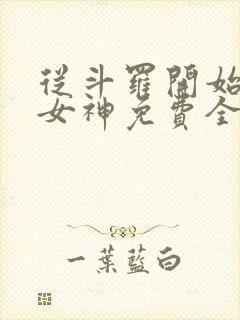 從斗羅開始
女神免費全
一葉藍白